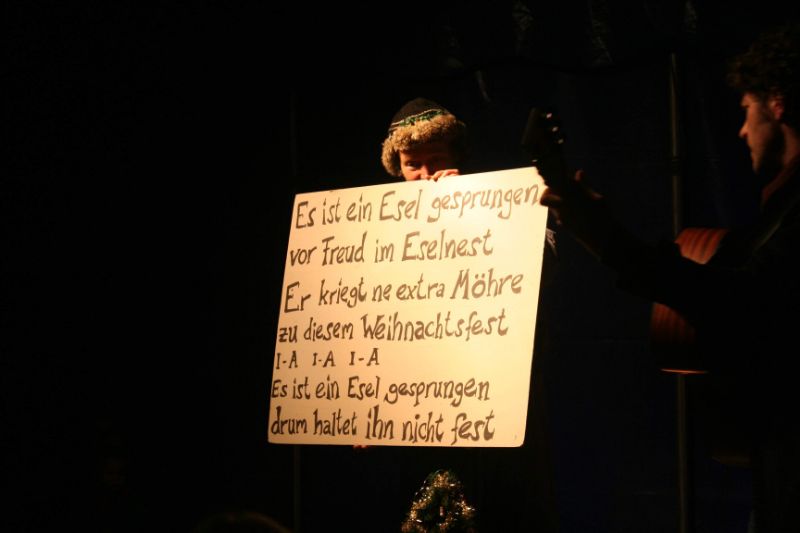 Es ist ein Esel gesprungen
vor Freud im Eselnest
Er kriegt ne extra Möhre
zu diesem Weihnachtsfest
I-A I-A I-A
Es ist ein Esel gesprungen
drum haltet ihn nicht fest